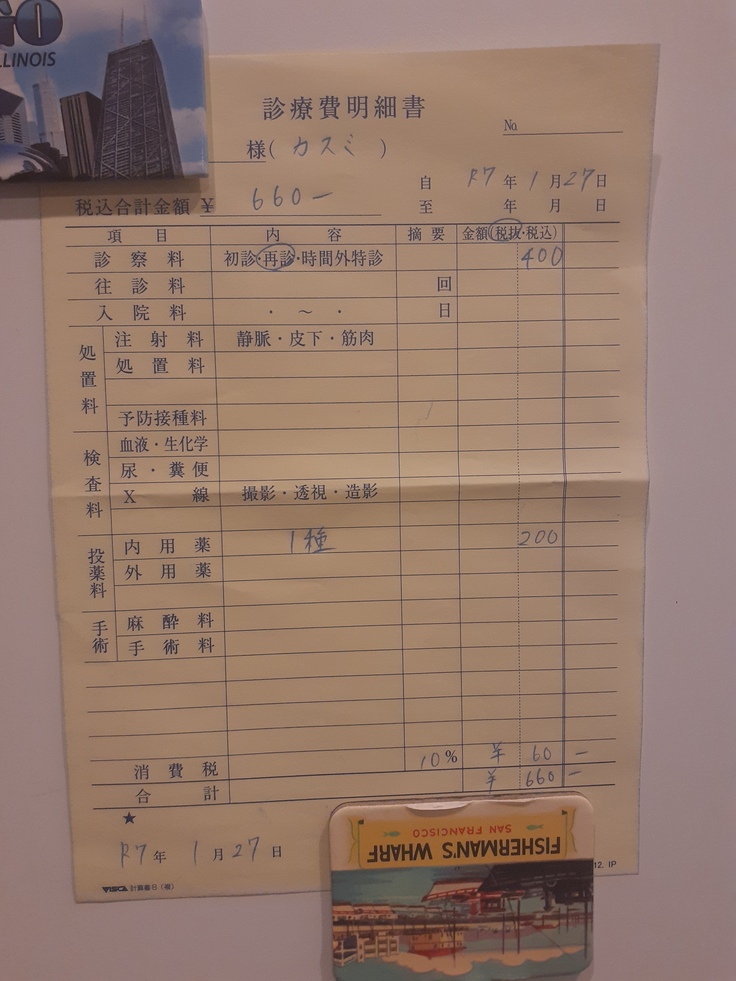 GO
ILLINOIS
診療費明細書
No.
様(カスミ)
自 R7年1月27日
税込合計金額 ¥ 660-
至 年 月 日
項目 内容 摘要 金額(税抜・税込)
診察料 初診・再診・時間外特診 400
往診料 回
入院料 ・ ~ ・ 日
処置料
注射料 静脈・皮下・筋肉
処置料
予防接種料
検査料
血液・生化学
尿・糞便
X線 撮影・透視・造影
投薬料
内用薬 1種 200
外用薬
手術
麻酔料
手術料
消費税 10% ¥ 60 -
合計 ¥ 660 -
★
R7年1月27日
VISCA 計算書B(複)
12. IP
FISHERMAN'S WHARF
SAN FRANCISCO